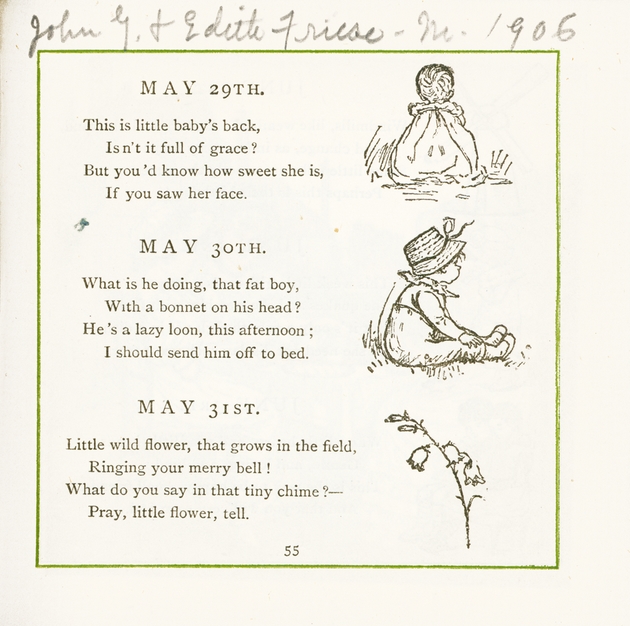 John G. & Edith Friese - M. 1906
MAY 29TH.
This is little baby's back,
Isn't it full of grace?
But you'd know how sweet she is,
If you saw her face.
MAY 30TH.
What is he doing, that fat boy,
With a bonnet on his head?
He's a lazy loon, this afternoon;
I should send him off to bed.
MAY 31ST.
Little wild flower, that grows in the field,
Ringing your merry bell!
What do you say in that tiny chime?—
Pray, little flower, tell.
55